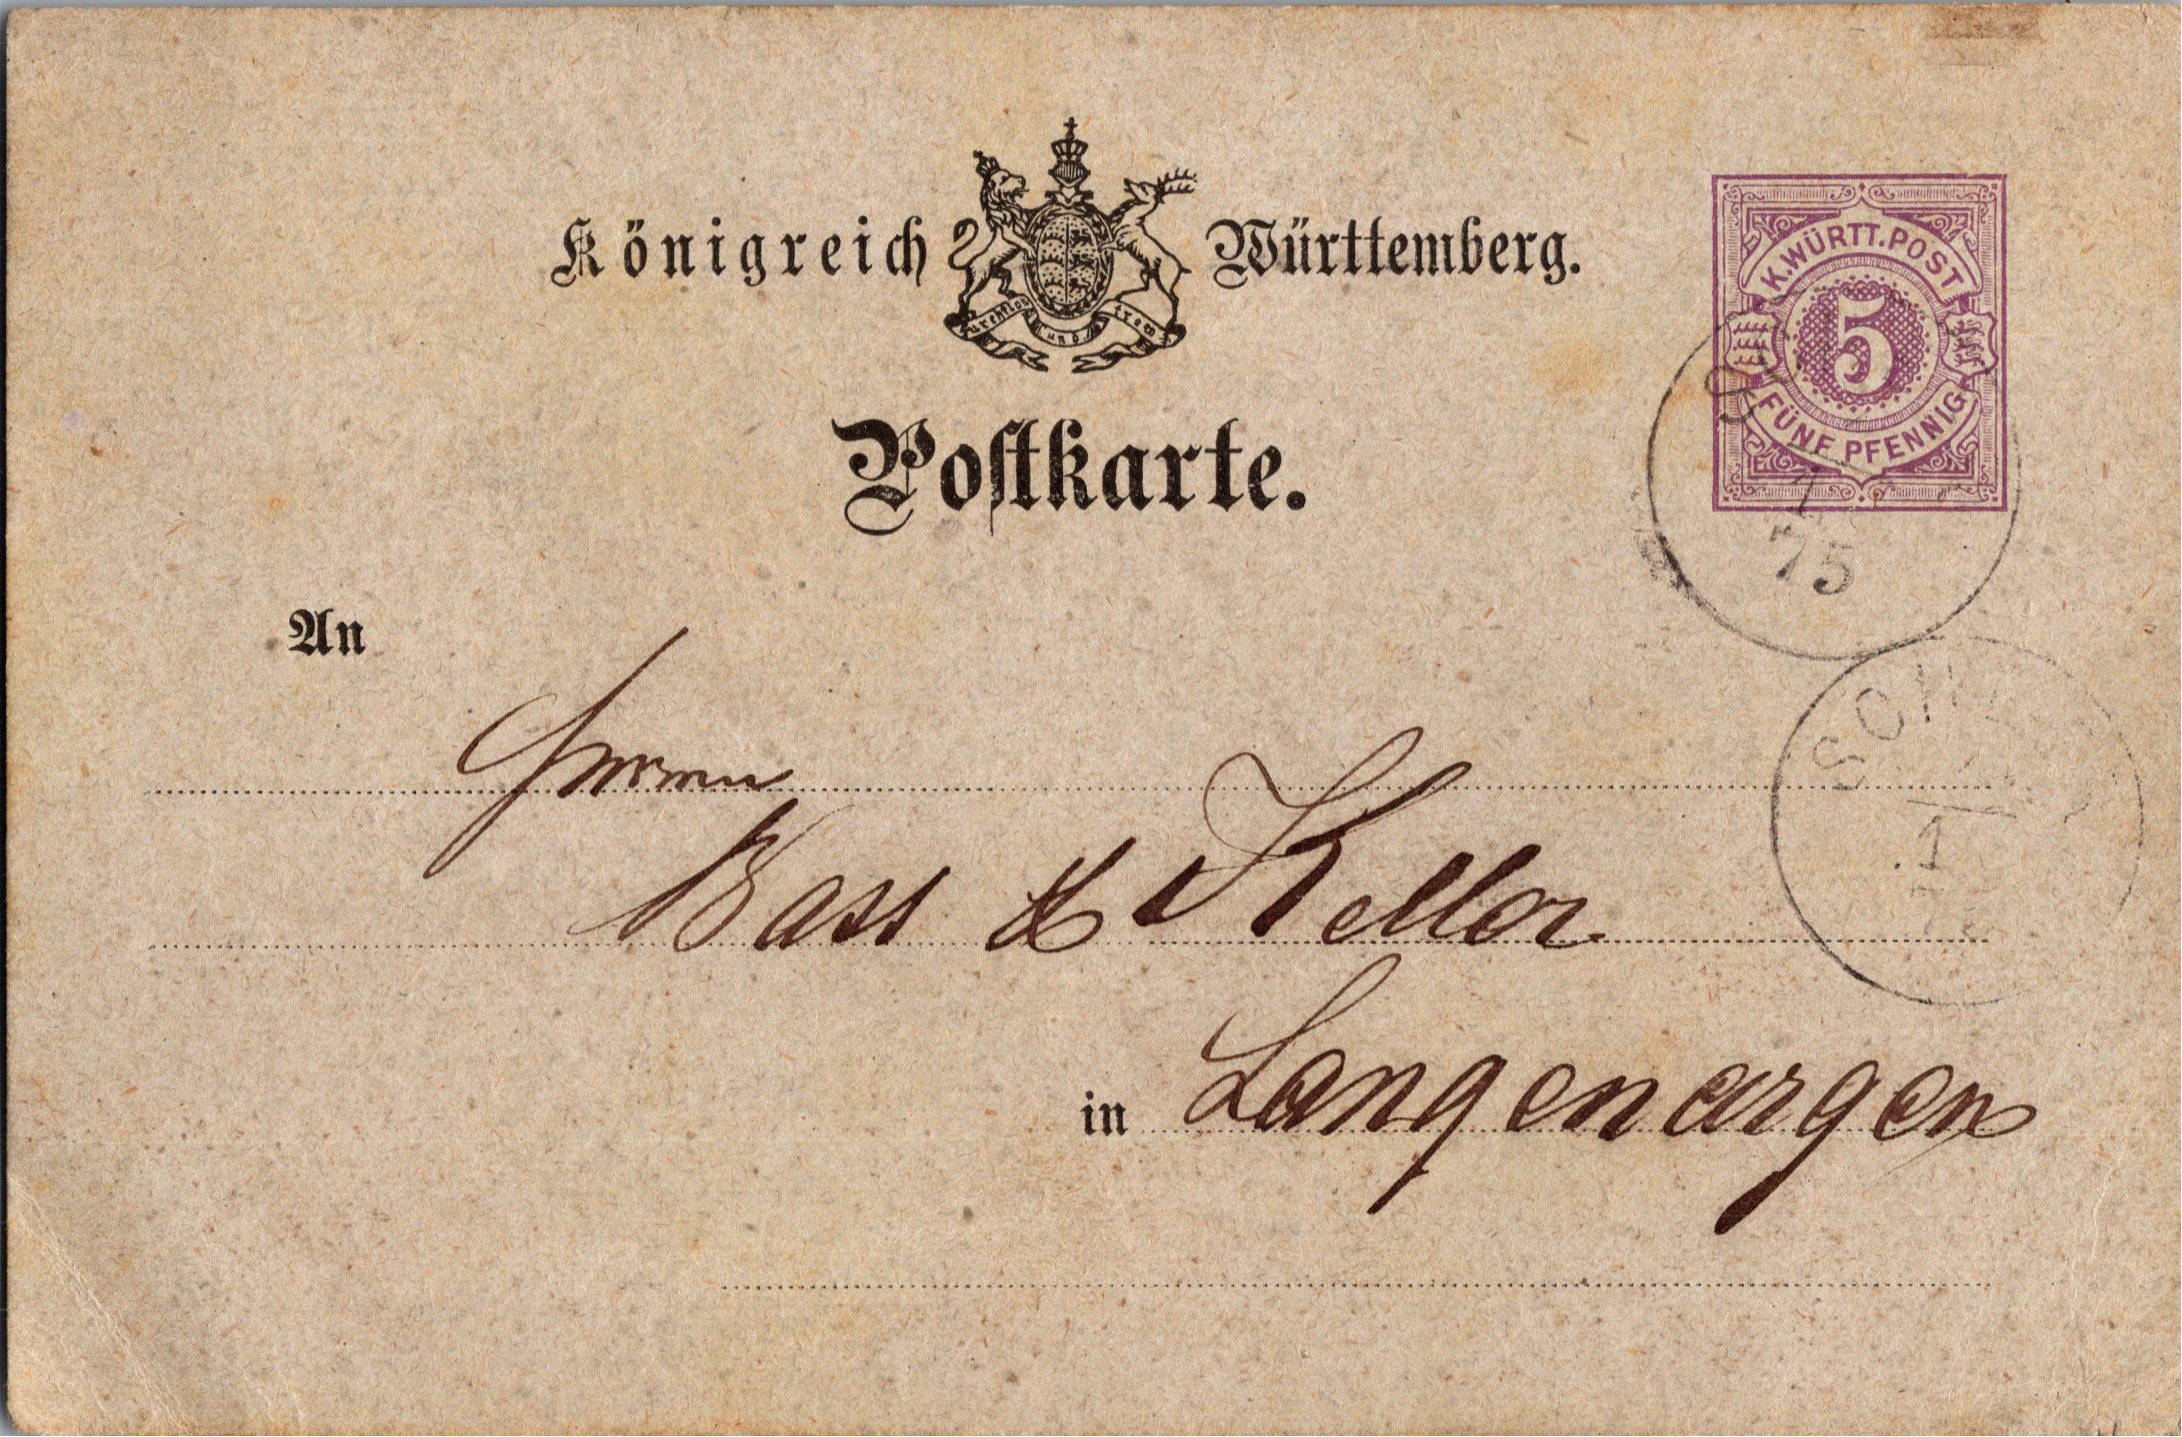 Königreich Württemberg.
furchtlos und trew
K. WÜRTT. POST
5
FÜNF PFENNIG
Postkarte.
1
75
An
Herren
SCH
Bass & Keller
1
in Langenargen